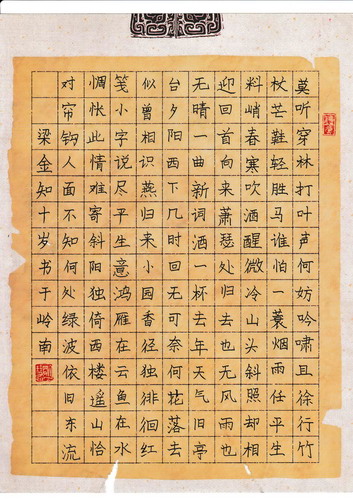 莫听穿林打叶声何妨吟啸且徐行竹
杖芒鞋轻胜马谁怕一蓑烟雨任平生
料峭春寒吹酒醒微冷山头斜照却相
迎回首向来萧瑟处归去也无风雨也
无晴一曲新词酒一杯去年天气旧亭
台夕阳西下几时回无可奈何花落去
似曾相识燕归来小园香径独徘徊红
笺小字说尽平生意鸿雁在云鱼在水
惆怅此情难寄斜阳独倚西楼遥山恰
对帘钩人面不知何处绿波依旧东流
梁金知十岁书于岭南